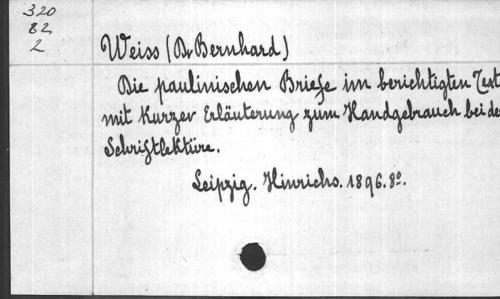 320
82
2
Weiss (Dr Bernhard)
Die paulinischen Briefe im berichtigten Text
mit kurzer Erläuterung zum Handgebrauch bei de
Schriftlektüre.
Leipzig. Hinrichs. 1896. 8º.